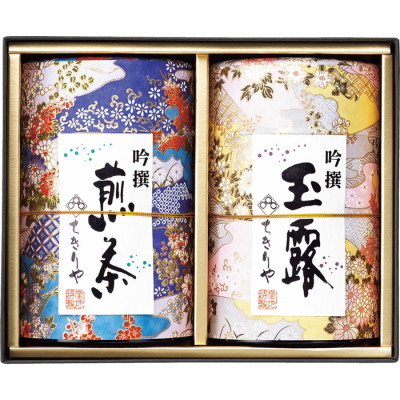 吟撰
煎茶
ちきりや
吟撰
玉露
ちきりや